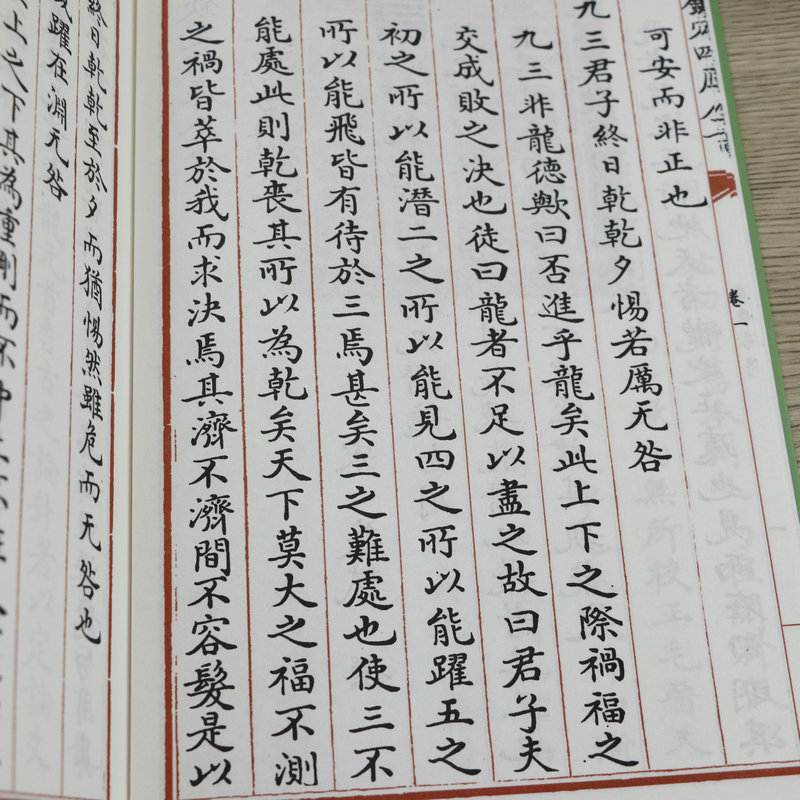 卷一
可安而非正也
九三君子終日乾乾夕惕若厲无咎
九三非龍德歟曰否進乎龍矣此上下之際禍福之
交成敗之決也徒曰龍者不足以盡之故曰君子夫
初之所以能潛二之所以能見四之所以能躍五之
所以能飛皆有待於三焉甚矣三之難處也使三不
能處此則乾喪其所以為乾矣天下莫大之福不測
之禍皆萃於我而求決焉其濟不濟間不容髮是以
終日乾乾至於夕而猶惕然雖危而无咎也
躍在淵无咎
上之下其為重剛而不中